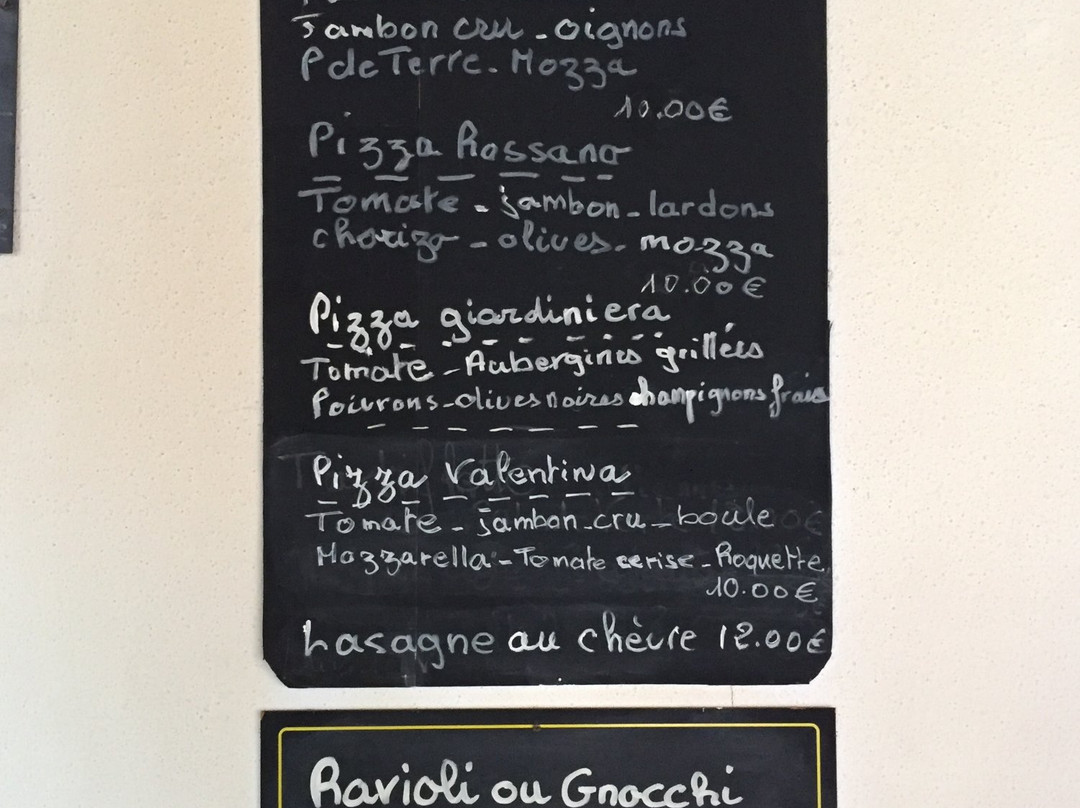 Jambon cru - oignons
P de Terre - Mozza
10.00€
Pizza Rossano
Tomate - jambon - lardons
chorizo - olives - mozza
10.00€
Pizza giardiniera
Tomate - Aubergines grillées
Poivrons - olives noires champignons frais
Pizza Valentina
Tomate - jambon - cru - boule
Mozzarella - Tomate cerise - Roquette
10.00€
Lasagne au chèvre 12.00€
Ravioli ou Gnocchi